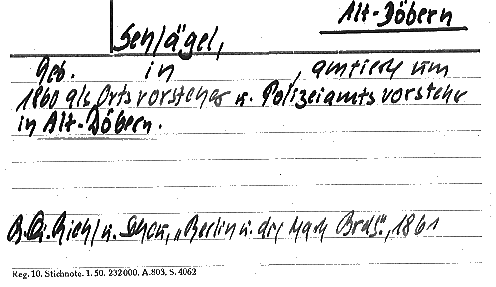 Alt-Döbern
Schlägel,
geb. in , amtierte um
1860 als Ortsvorsteher u. Polizeiamtsvorsteher
in Alt-Döbern.
"Berlin u. die Mark Brdb.", 1861
Reg. 10. Stichnote. 1. 50. 232000. A. 803. S. 4062